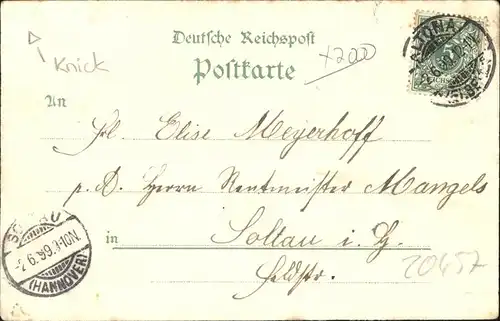 Knick
Deutsche Reichspost
Postkarte
+200
An
Frl. Elise Meyerhoff
p. A. Herrn Rentmeister Mangels
in Soltau i. H.
Feldstr.
20457
ALTONA
SOLTAU
2.6.99.9-10N.
(HANNOVER)